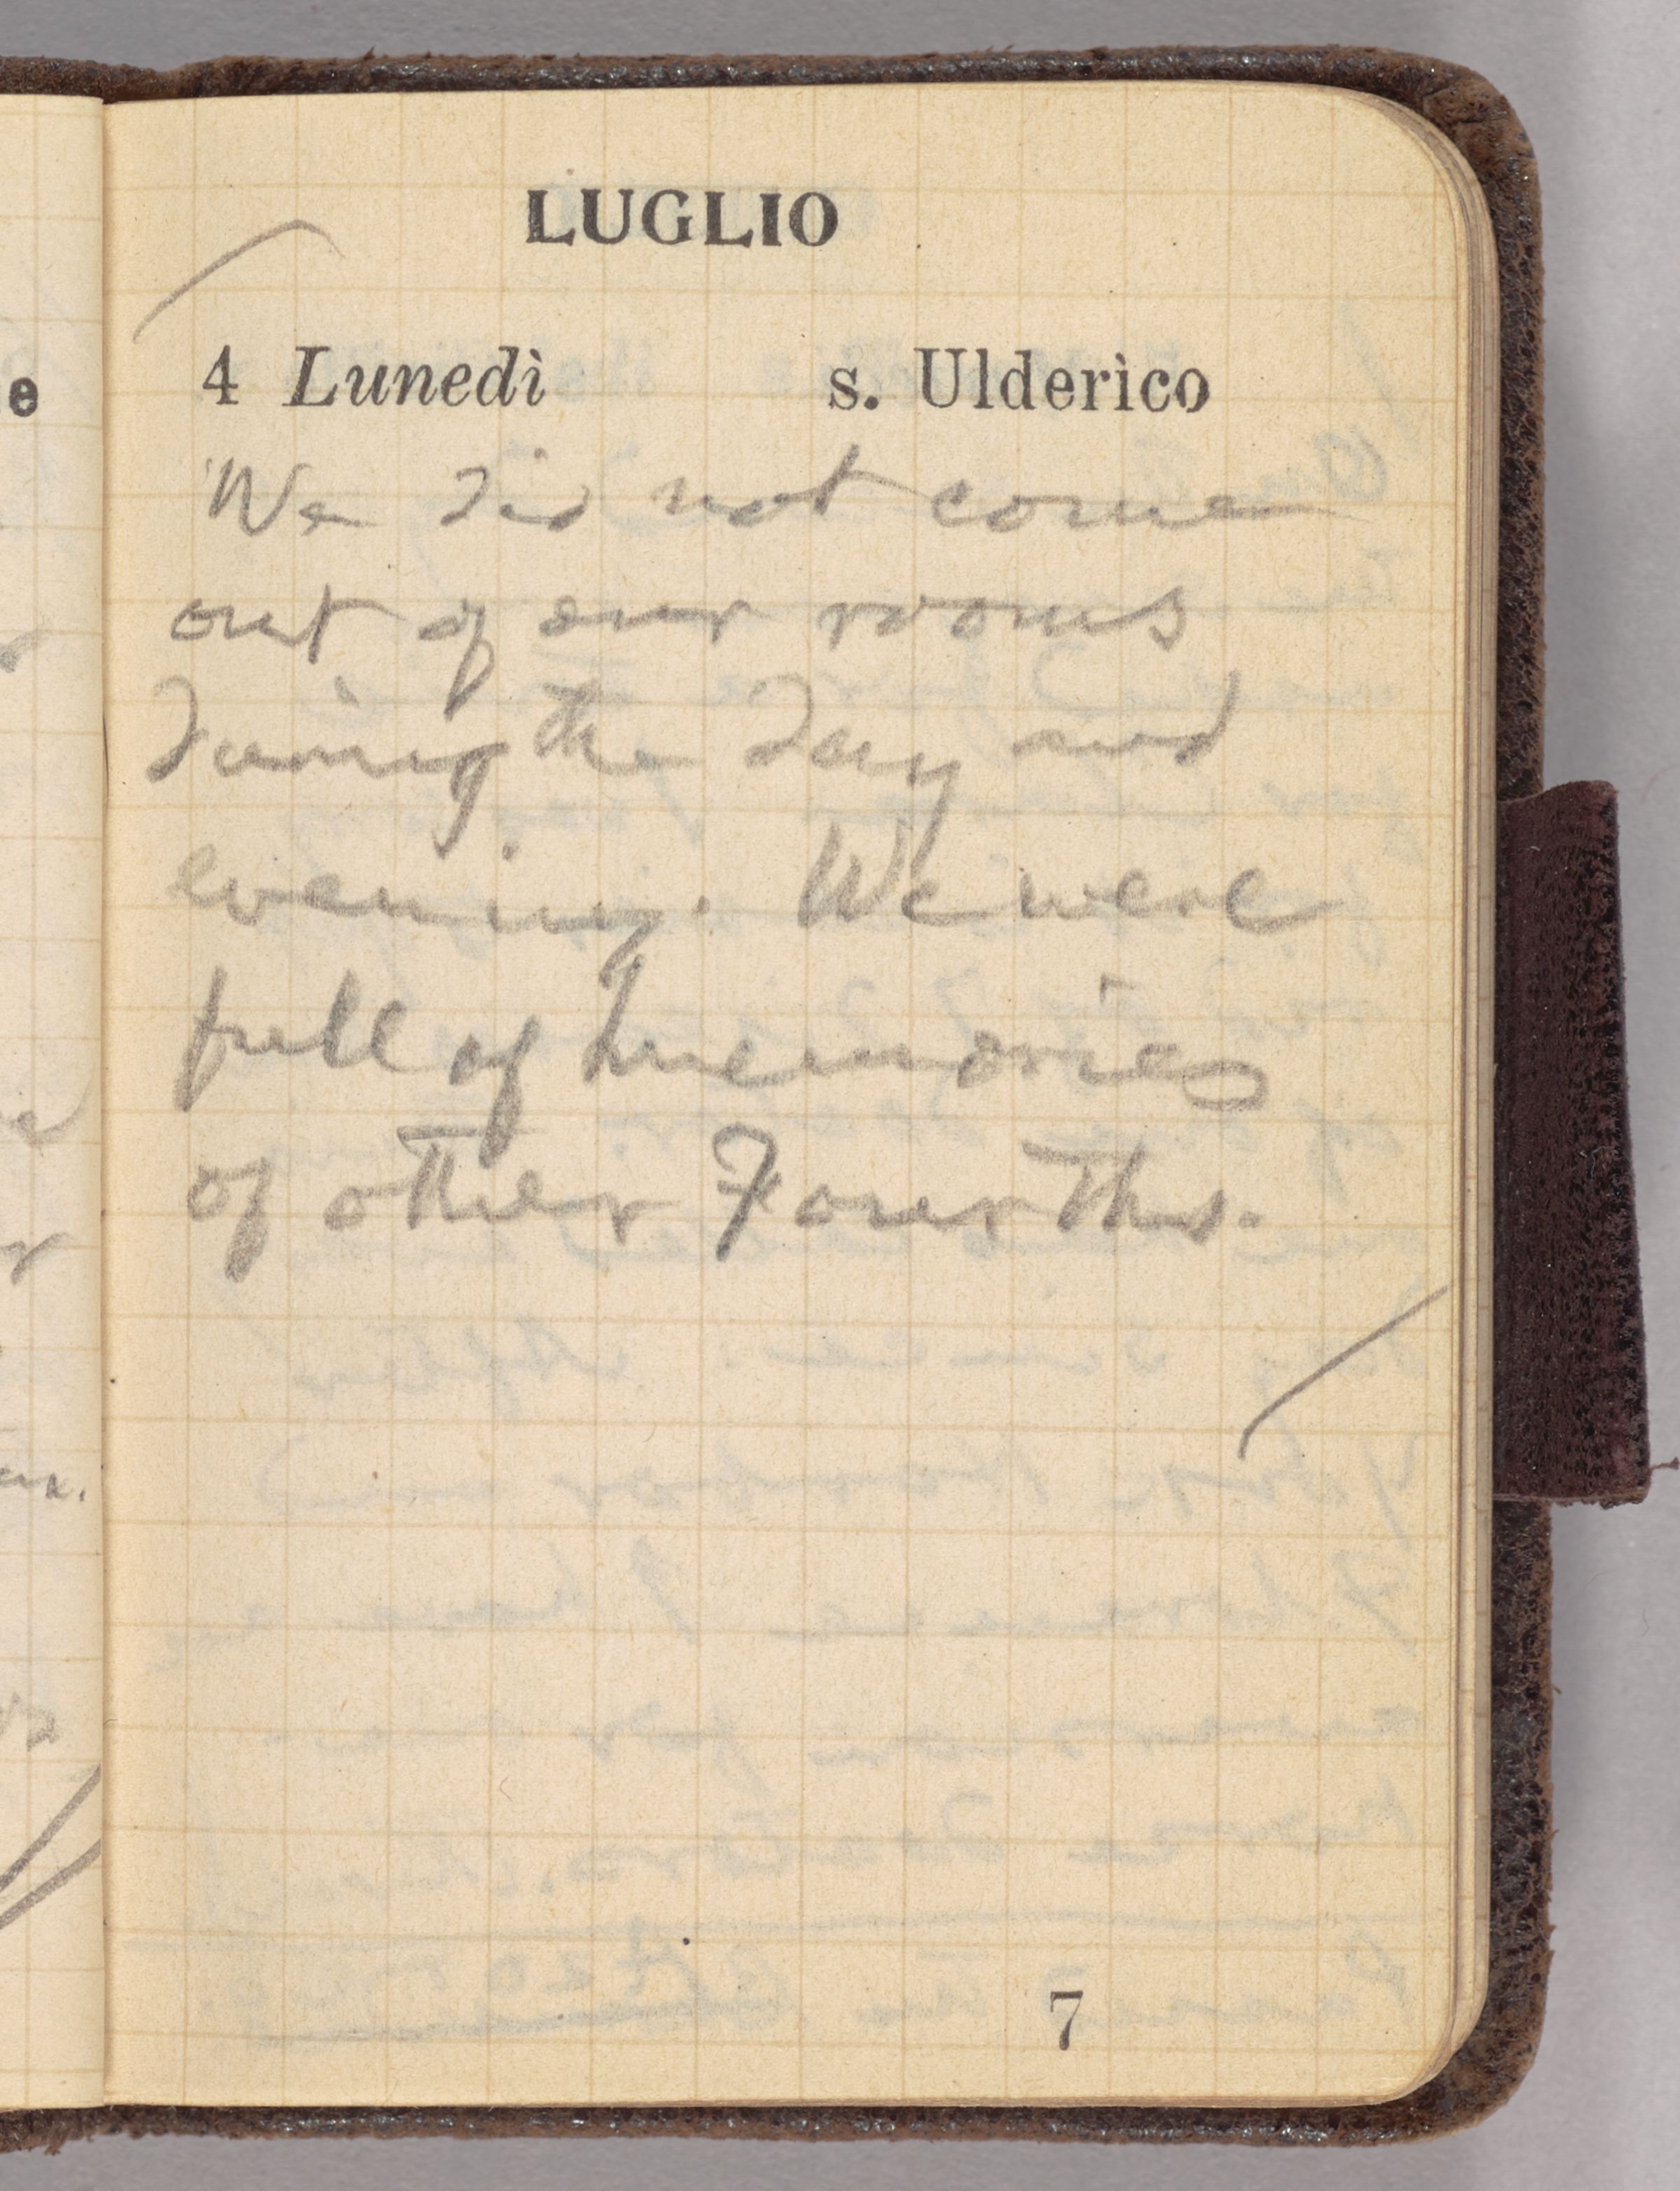 LUGLIO
4 Lunedì s. Ulderico
We did not come
out of our rooms
during the day and
evening. We were
full of memories
of other Fourths.
7